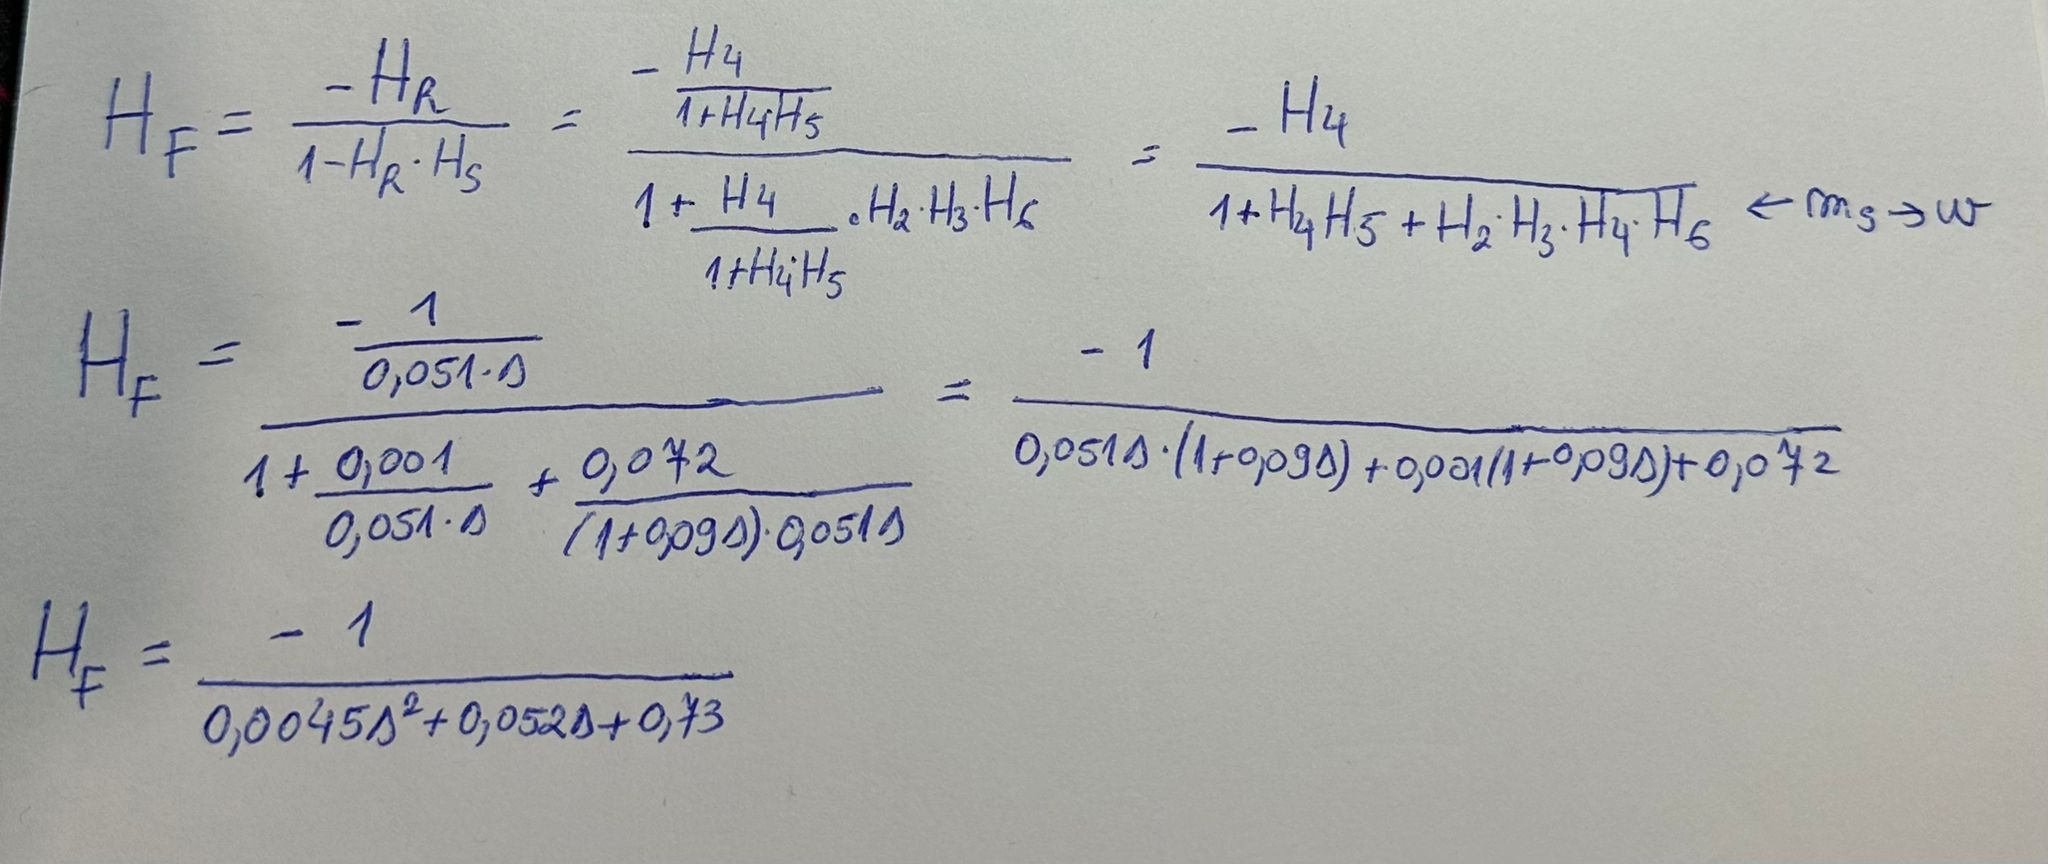 H_F = -H_R / (1-H_R·H_S) = (-H4 / (1+H4H5)) / (1 + H4 / (1+H4·H5) · H2·H3·H6) = -H4 / (1+H4H5+H2·H3·H4·H6) ← m_s → w
H_F = (-1 / (0,051·s)) / (1 + 0,001 / (0,051·s) + 0,072 / ((1+0,09s)·0,051s)) = -1 / (0,051s·(1+0,09s)+0,001(1+0,09s)+0,072)
H_F = -1 / (0,0045s²+0,052s+0,73)